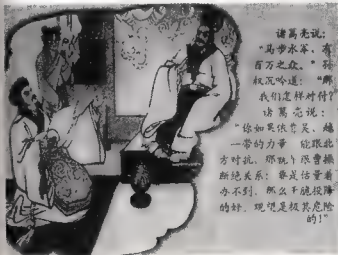 诸葛亮说：
"马步水军，有
百万之众。"孙
权沉吟道："那
我们怎样对付？
诸葛亮说：
"你如果依仗吴、越
一带的力量，能跟北
方对抗，那就与曹操
断绝关系；要是估量着
办不到，那么干脆投降
的好，观望是极其危险
的！"